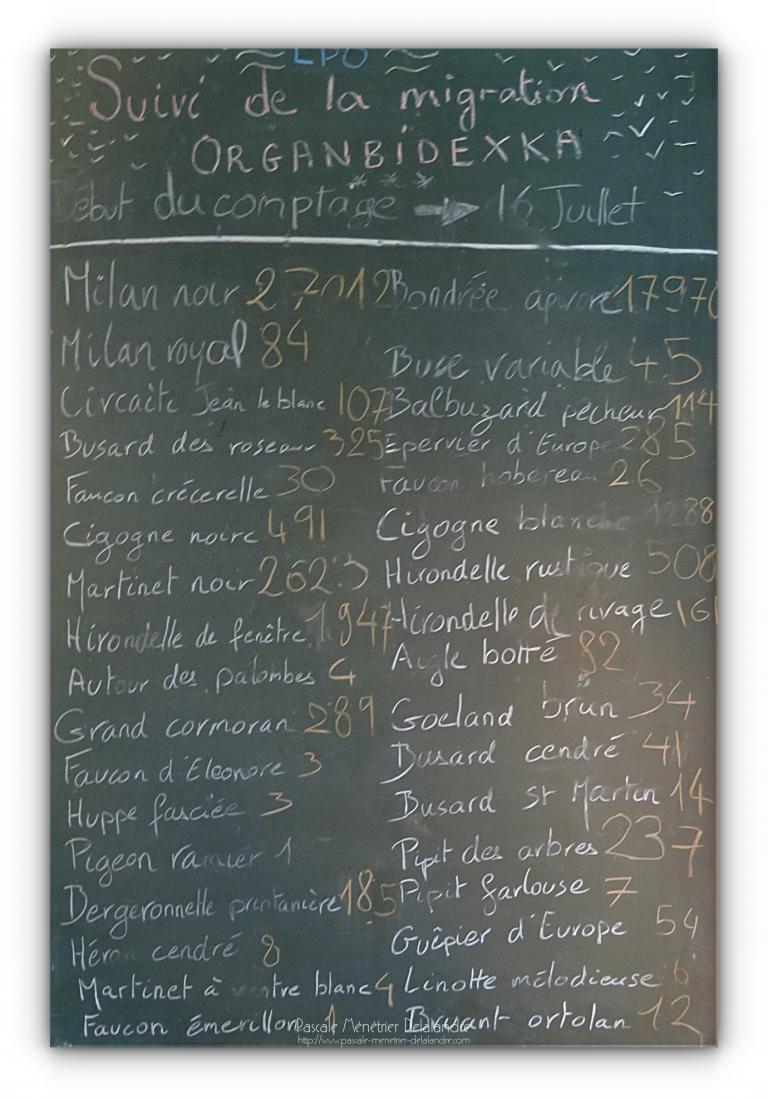 LPO
Suivi de la migration
ORGANBIDEXKA
***
Début du comptage → 16 Juillet
Milan noir 27012 Bondrée apivore 1797
Milan royal 84
Buse variable 45
Circaète Jean le blanc 107 Balbuzard pêcheur 114
Busard des roseaux 325 Epervier d'Europe 285
Faucon crécerelle 30 Faucon hobereau 26
Cigogne noire 491 Cigogne blanche 1288
Martinet noir 2623 Hirondelle rustique 508
Hirondelle de fenêtre 1947 Hirondelle de rivage 161
Autour des palombes 4 Aigle botté 82
Grand cormoran 289 Goeland brun 34
Faucon d'Eleonore 3 Busard cendré 41
Huppe fasciée 3 Busard st Martin 14
Pigeon ramier 1 Pipit des arbres 237
Bergeronnelle printanière 185 Pipit farlouse 7
Héron cendré 8 Guêpier d'Europe 54
Martinet à ventre blanc 4 Linotte mélodieuse 6
Faucon émerillon 1 Bruant ortolan 12
Pascale Ménétrier Delalandre
http://www.pascale-menetrier-delalandre.com